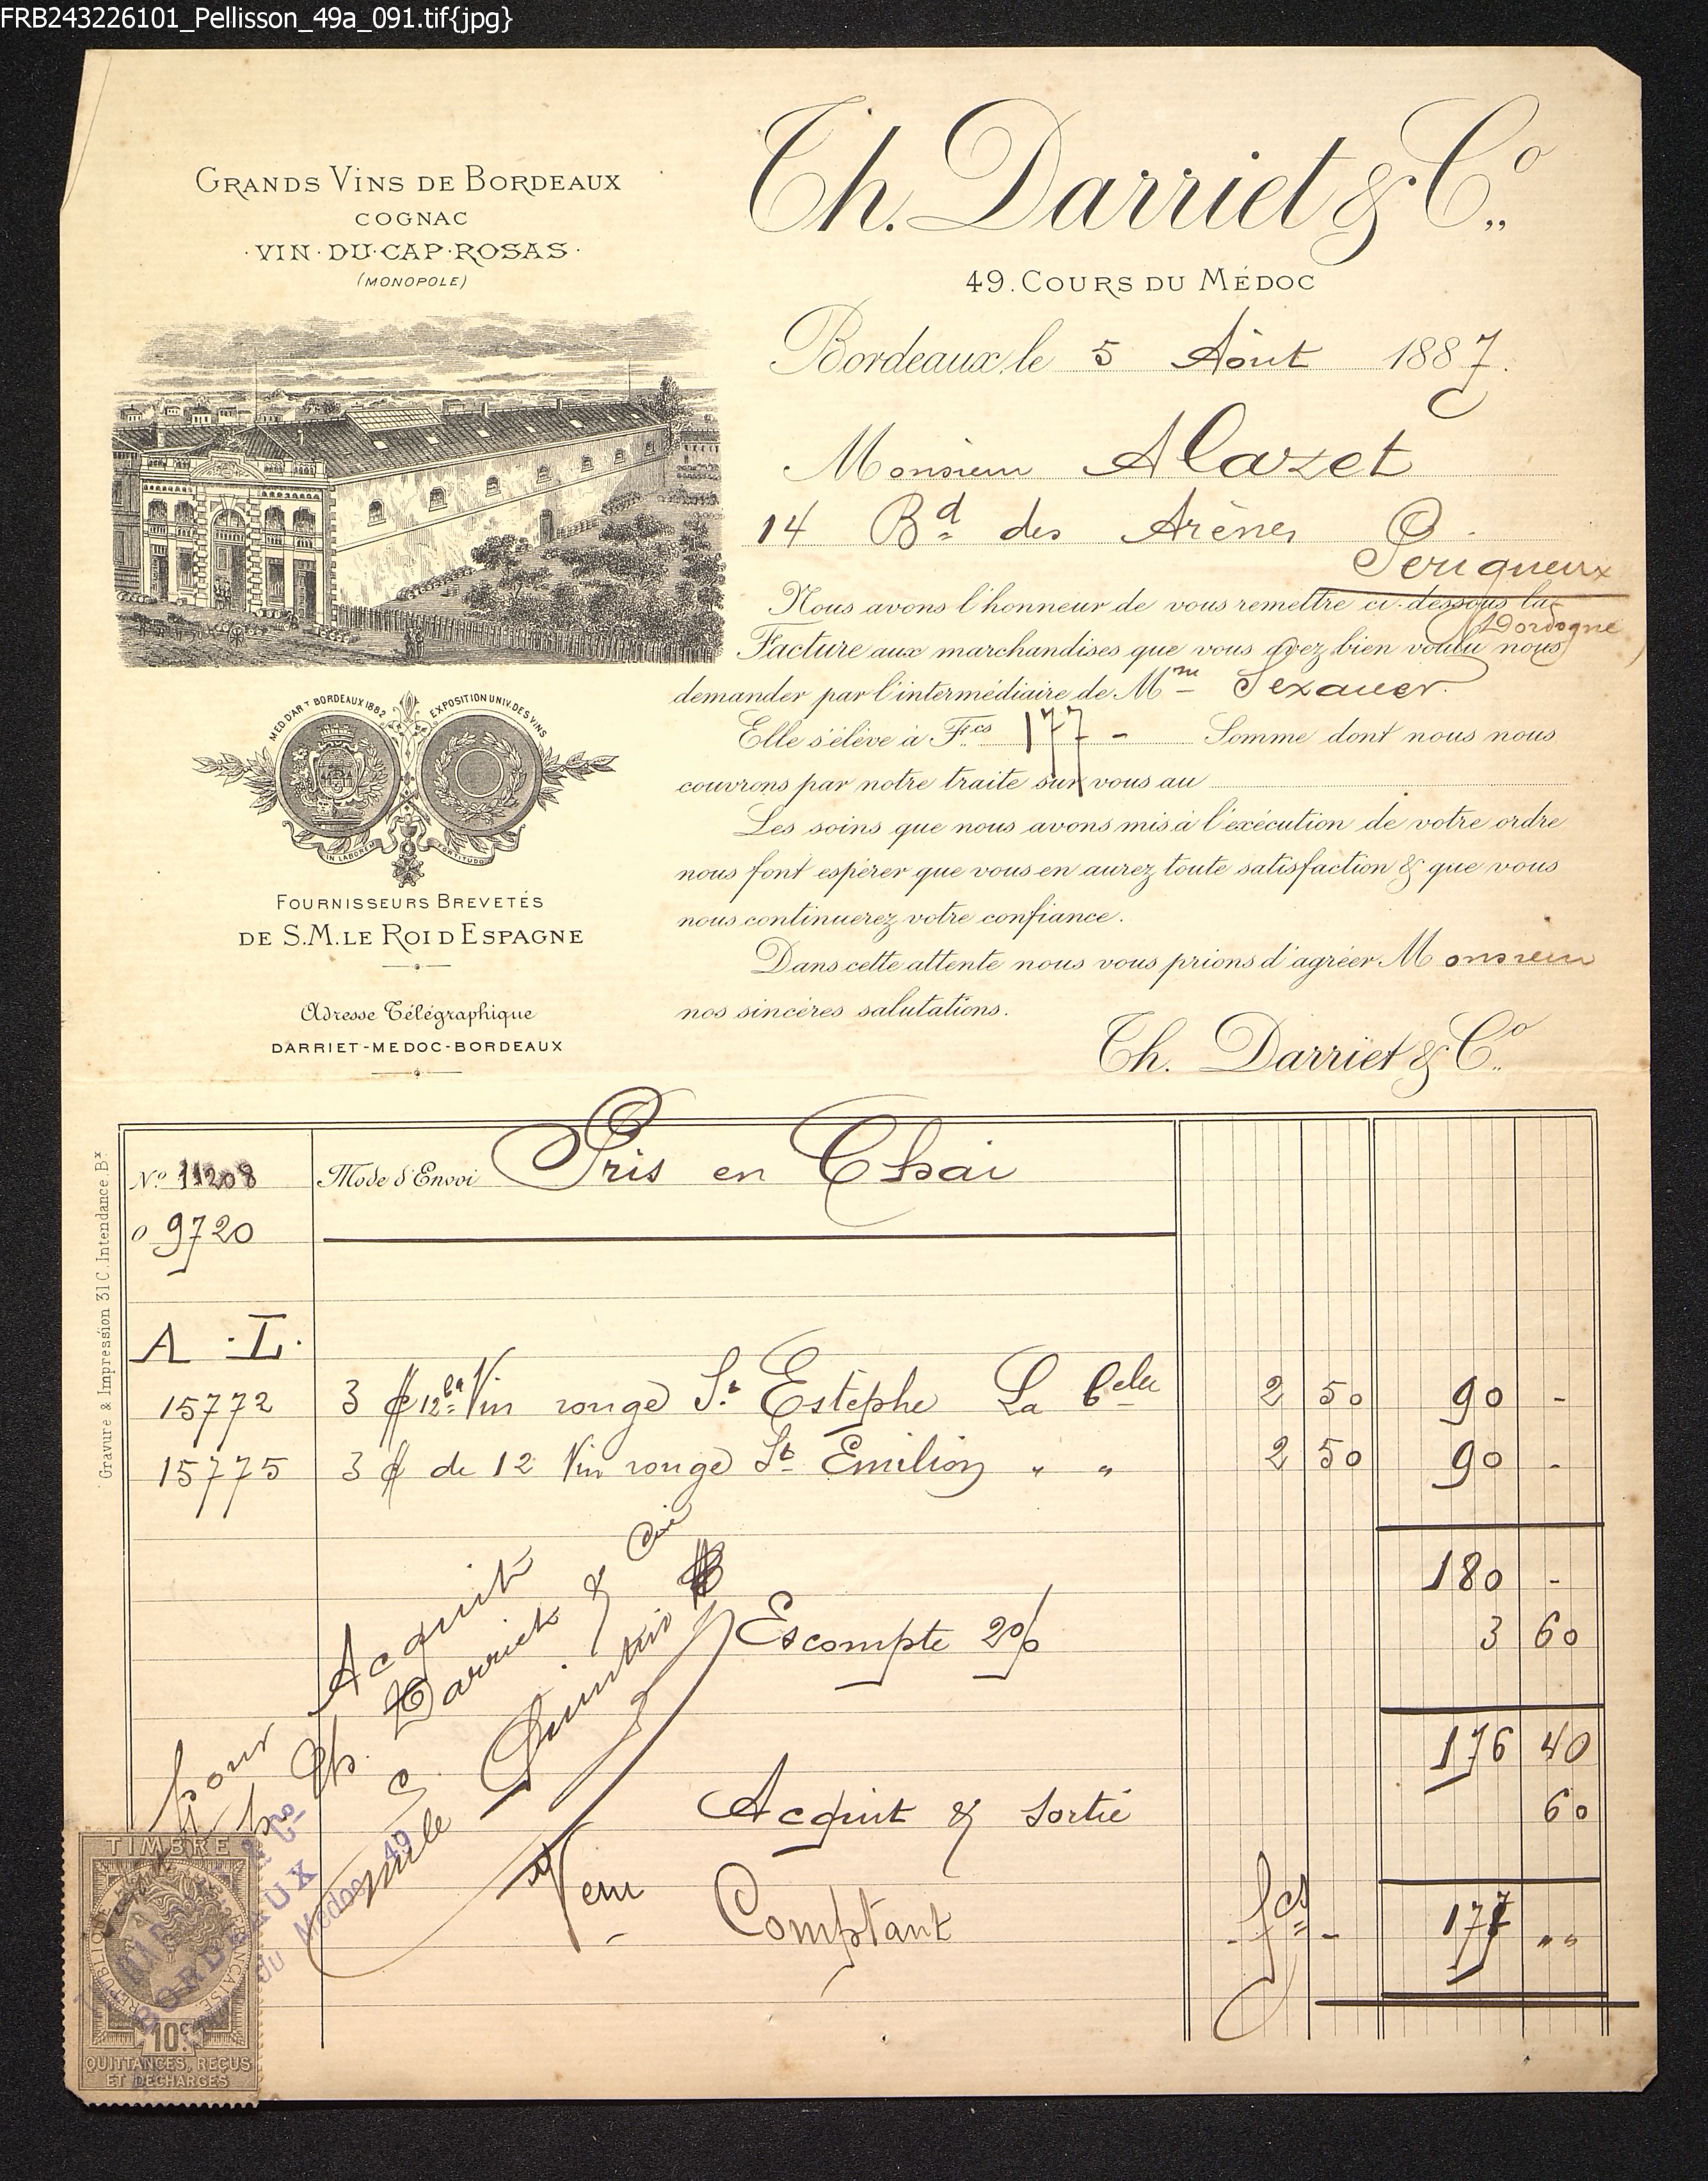 FRB243226101_Pellisson_49a_091.tif{jpg}
GRANDS VINS DE BORDEAUX
COGNAC
·VIN·DU·CAP·ROSAS·
(MONOPOLE)
Th. Darriet & Co.,,
49. COURS DU MÉDOC
Bordeaux, le 5 Août 1887.
Monsieur Alazet
14 Bd des Arènes
Perigueux
(Dordogne)
Nous avons l'honneur de vous remettre ci-dessous la
Facture aux marchandises que vous avez bien voulu nous
demander par l'intermédiaire de Mm Sexauer.
Elle s'élève à Fcs 177 - Somme dont nous nous
couvrons par notre traite sur vous au
Les soins que nous avons mis à l'exécution de votre ordre
nous font espérer que vous en aurez toute satisfaction & que vous
nous continuerez votre confiance.
Dans cette attente nous vous prions d'agréer Monsieur
nos sincères salutations.
Th. Darriet & Co.,,
MED. D'ART BORDEAUX 1882
EXPOSITION UNIV. DES VINS
IN LABORE FORTITUDO
FOURNISSEURS BREVETÉS
DE S.M. LE ROI D ESPAGNE
Adresse Télégraphique
DARRIET-MEDOC-BORDEAUX
Gravure & Impression 31 C. Intendance. Bx
No 11208 Mode d'Envoi Pris en Chai
o 9720
A . L.
15772 3 12 Vin rouge St Estèphe La 2 50 90 -
15775 3 de 12 Vin rouge St Emilion " " 2 50 90 -
180 -
Escompte 2% 3 60
176 40
Acquit & Sortie 60
Comptant fcs - 177 ,,
Pour Acquit
Th. Darriet & Cie
TIMBRE
RÉPUBLIQUE FRANÇAISE
10c
QUITTANCES, REÇUS
ET DÉCHARGES
& Co
BORDEAUX
du Médoc, 49